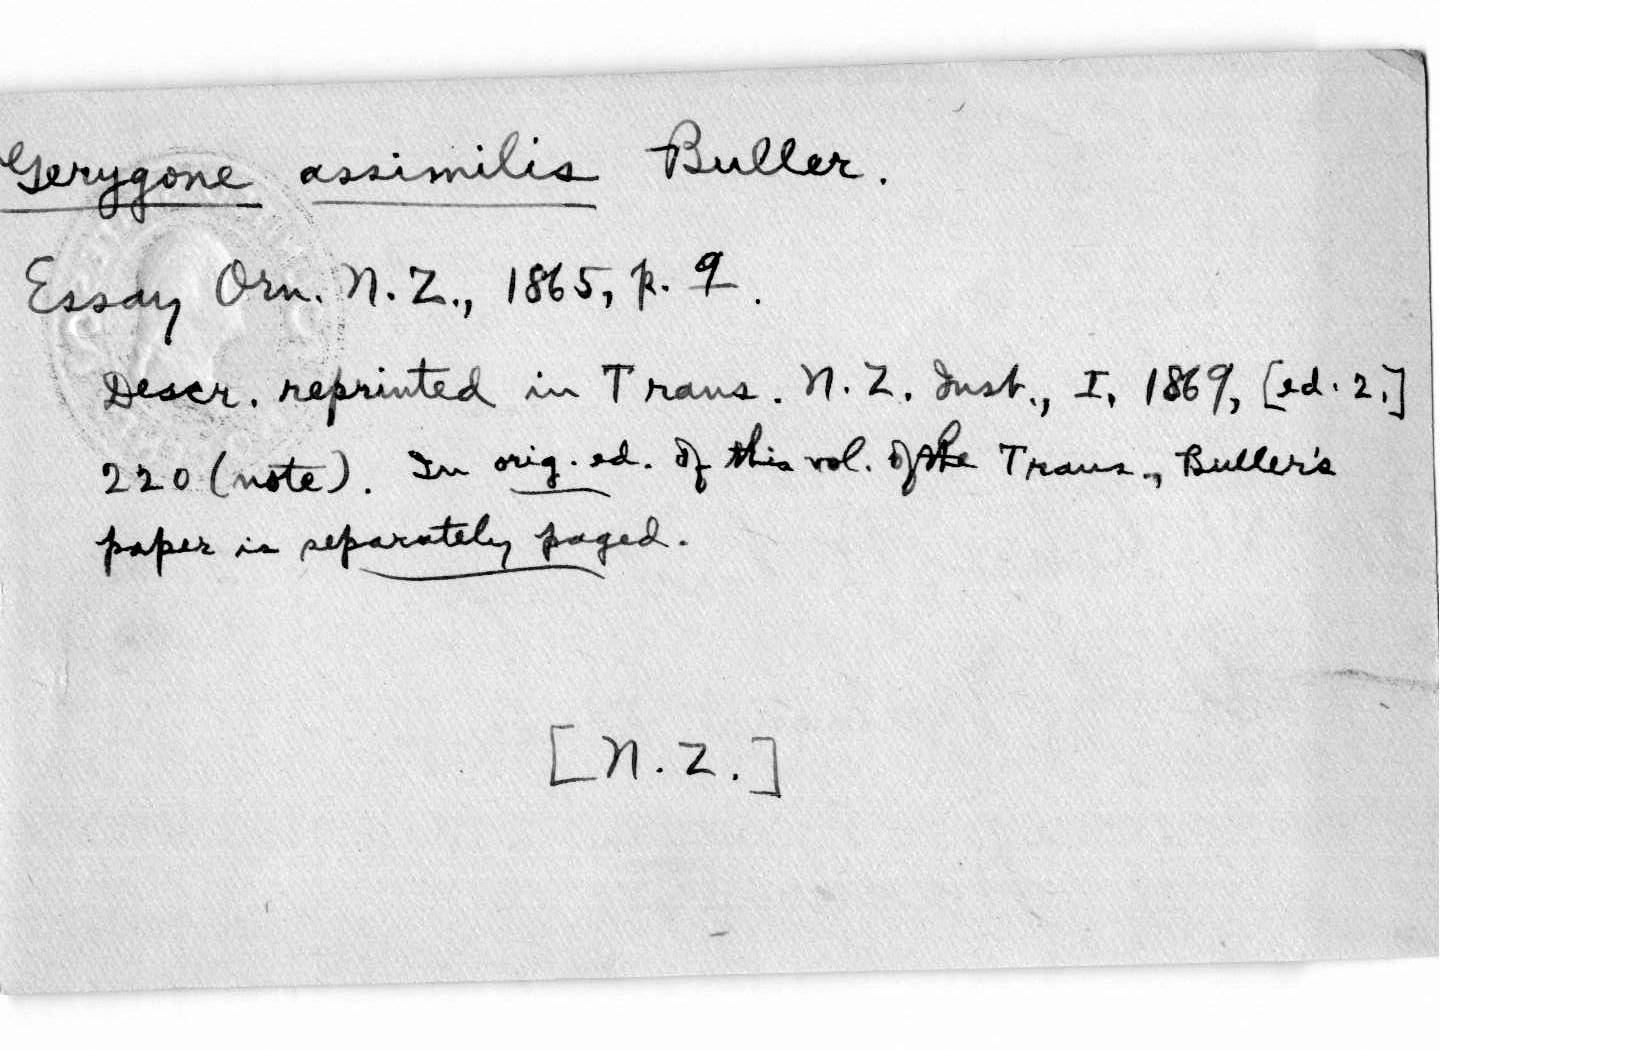 Gerygone assimilis Buller.
Essay Orn. N.Z., 1865, p. 9.
Descr. reprinted in Trans. N.Z. Inst., I, 1869, [ed. 2.]
220 (note). In orig. ed. of this vol. of the Trans., Buller's
paper is separately paged.
[N.Z.]